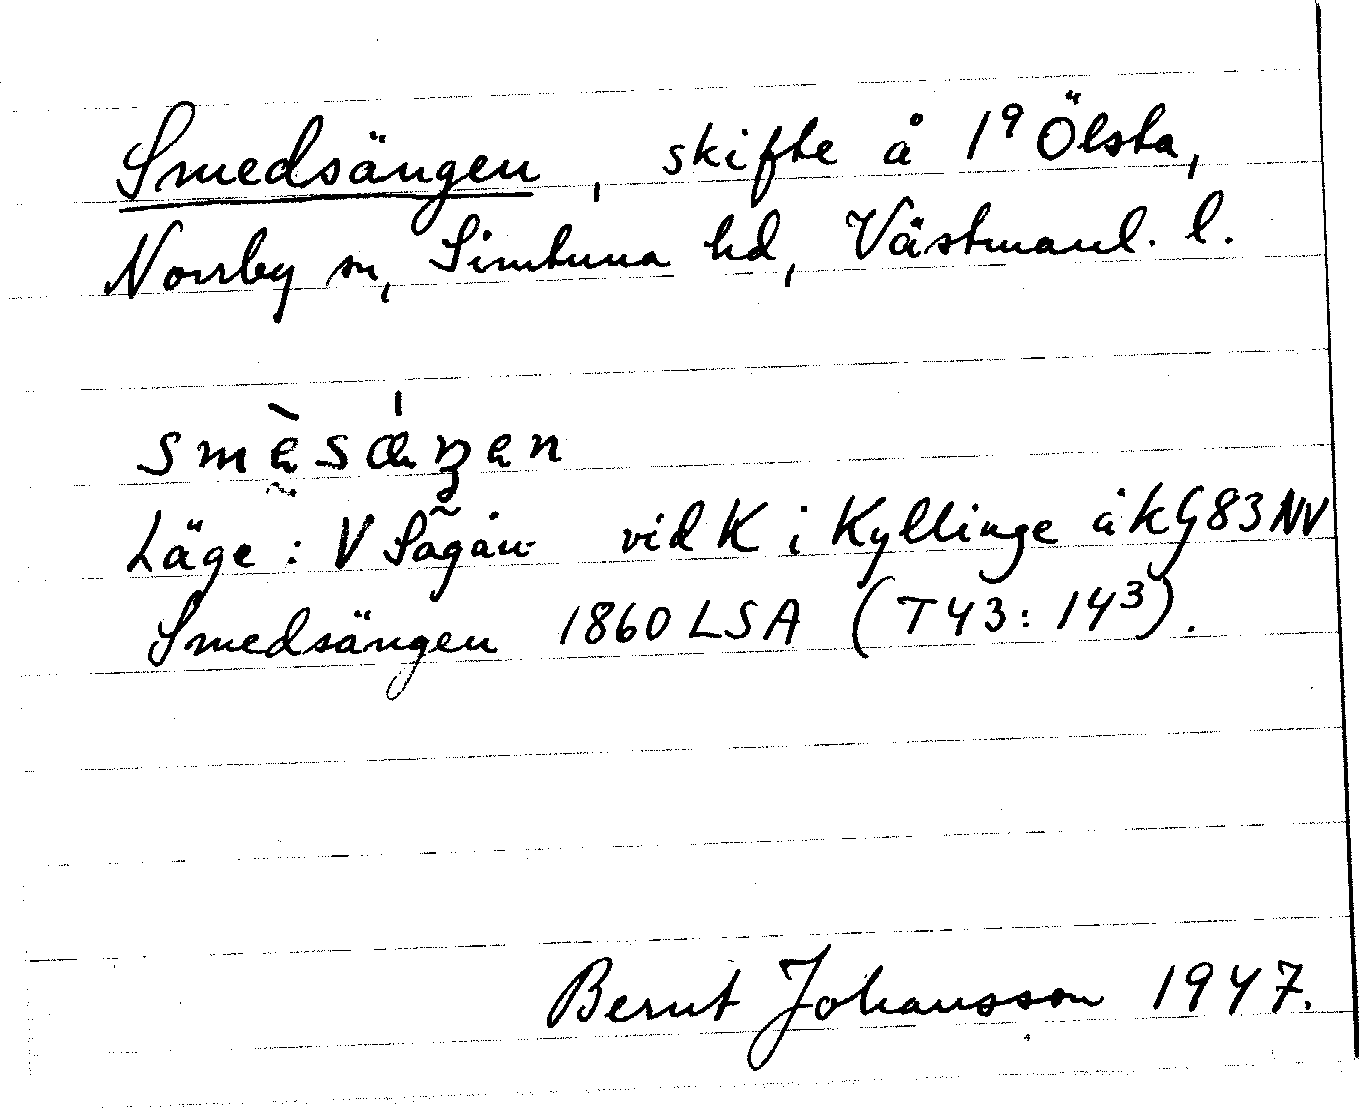 Smedsängen, skifte å 1⁹ Ölsta,
Norrby sn, Simtuna hd, Västmanl. l.
Läge: V Sagån vid K i Kyllinge åkG83NV
Smedsängen 1860 LSA (T43:14³).
Bernt Johansson 1947.